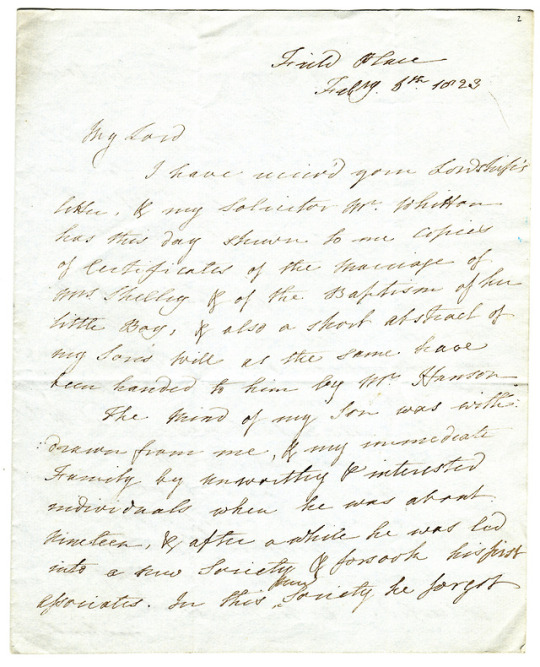 2
Field Place
Feby. 6th. 1823
My Lord
I have receiv'd your Lordship's
letter, & my Solicitor Mr. Whitton
has this day shewn to me copies
of Certificates of the Marriage of
Mrs Shelley & of the Baptism of her
little Boy, & also a short abstract of
my Son's Will as the same have
been handed to him by Mr. Hanson
The Mind of my Son was with:
:drawn from me, & my immediate
Family by unworthy & interested
individuals when he was about
Nineteen, & after a while he was led
into a new Society & forsook his first
associates. In this new Society he forgot